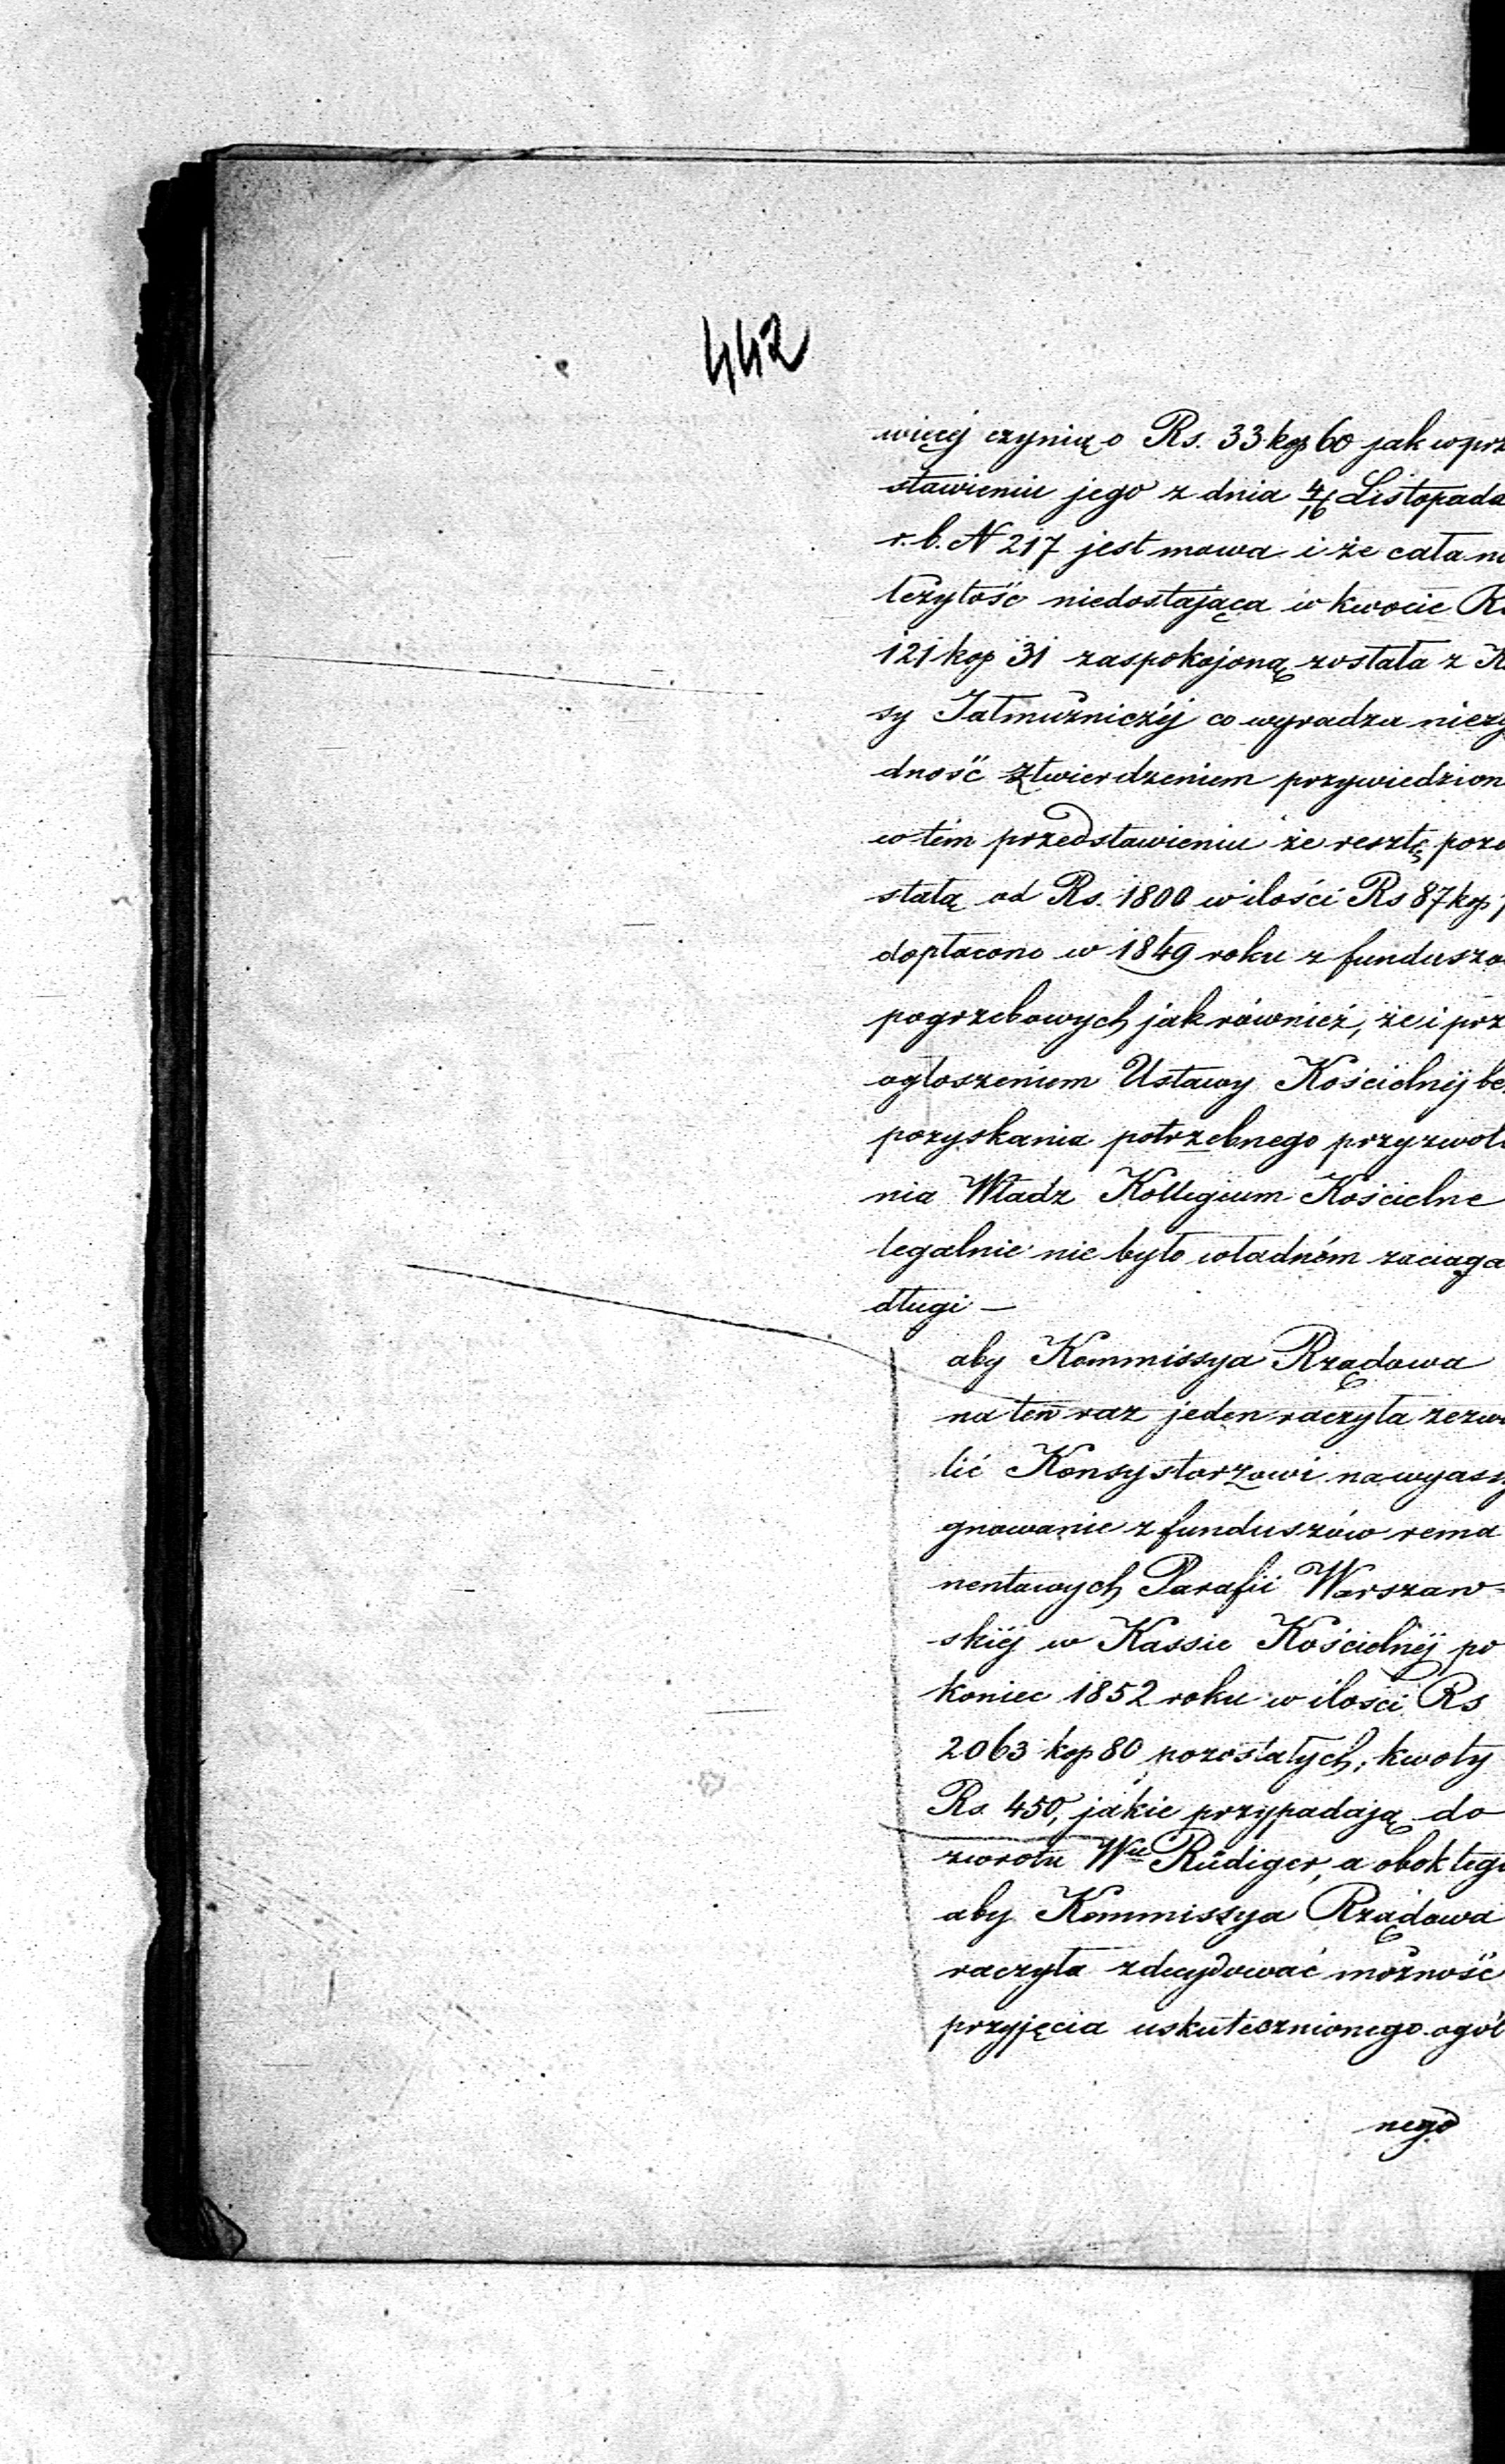 442
więcéj czynią o Rs. 33 kop 60 jak w prz
stawieniu jego z dnia 4/16 Listopada
r. b. N 217 jest mowa i że cała na
leżytość niedostająca w kwocie Rs
121 kop 31 zaspokojoną została z K
sy Jałmużniczéj co wyradza niezg
dność z twierdzeniem przywiedzion
w tém przedstawieniu że resztę pozo
stałą od Rs. 1800 w ilości Rs 87 kop 7
dopłacono w 1849 roku z funduszó
pogrzebowych jak również, że i prz
ogłoszeniem Ustawy Kościelnéj be
pozyskania potrzebnego przyzwole
nia Władz Kollegium Kościelne
legalnie nie było władném zaciąga
długi —
aby Kommissya Rządowa
na ten raz jeden raczyła zezwo
lić Konsystorzowi na wyassy
gnowanie z funduszów rema
nentowych Parafii Warszaw=
skiéj w Kassie Kościelnéj po
koniec 1852 roku w ilości Rs
2063 kop 80 pozostałych, kwoty
Rs. 450, jakie przypadają do
zwrotu Wu Rüdiger, a obok tego
aby Kommissya Rządowa
raczyła zdecydować możność
przyjęcia uskutecznionego ogól
nego